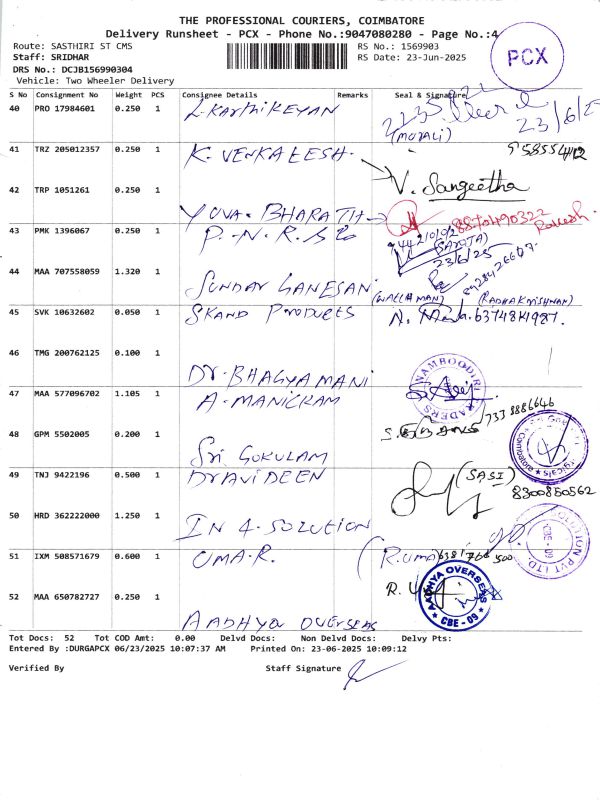 THE PROFESSIONAL COURIERS, COIMBATORE
Delivery Runsheet - PCX - Phone No.:9047080280 - Page No.:4
Route: SASTHIRI ST CMS
RS No.: 1569903
Staff: SRIDHAR
RS Date: 23-Jun-2025
DRS No.: DCJB156990304
Vehicle: Two Wheeler Delivery
PCX
S No Consignment No Weight PCS Consignee Details Remarks Seal & Signature
40 PRO 17984601 0.250 1 L. KARTHIKEYAN
23/6/25
41 TRZ 205012357 0.250 1 K. VENKATESH.
42 TRP 1051261 0.250 1 YUVA. BHARATH
V. Sangeetha
8870490322
Rakesh
43 PMK 1396067 0.250 1 P. N. R. & Co
(SAROJA)
23/6/25
44 MAA 707558059 1.320 1 SUNDAR GANESAN
(RADHAKRISHNAN)
45 SVK 10632602 0.050 1 SKAND PRODUCTS
46 TMG 200762125 0.100 1 DR. BHAGYAMANI
NAMBOODIRI TRADERS
47 MAA 577096702 1.105 1 A. MANICKAM
7338886646
48 GPM 5502005 0.200 1 SRI GOKULAM
49 TNJ 9422196 0.500 1 DRAVIDEEN
(SASI)
8300850562
50 HRD 362222000 1.250 1 IN 4. SOLUTION
51 IXM 508571679 0.600 1 UMA. R.
(R. UMA)
CBE - 09
52 MAA 650782727 0.250 1 AADHYA OVERSEAS
AADHYA OVERSEAS
CBE - 09
Tot Docs: 52 Tot COD Amt: 0.00 Delvd Docs: Non Delvd Docs: Delvy Pts:
Entered By :DURGAPCX 06/23/2025 10:07:37 AM Printed On: 23-06-2025 10:09:12
Verified By Staff Signature